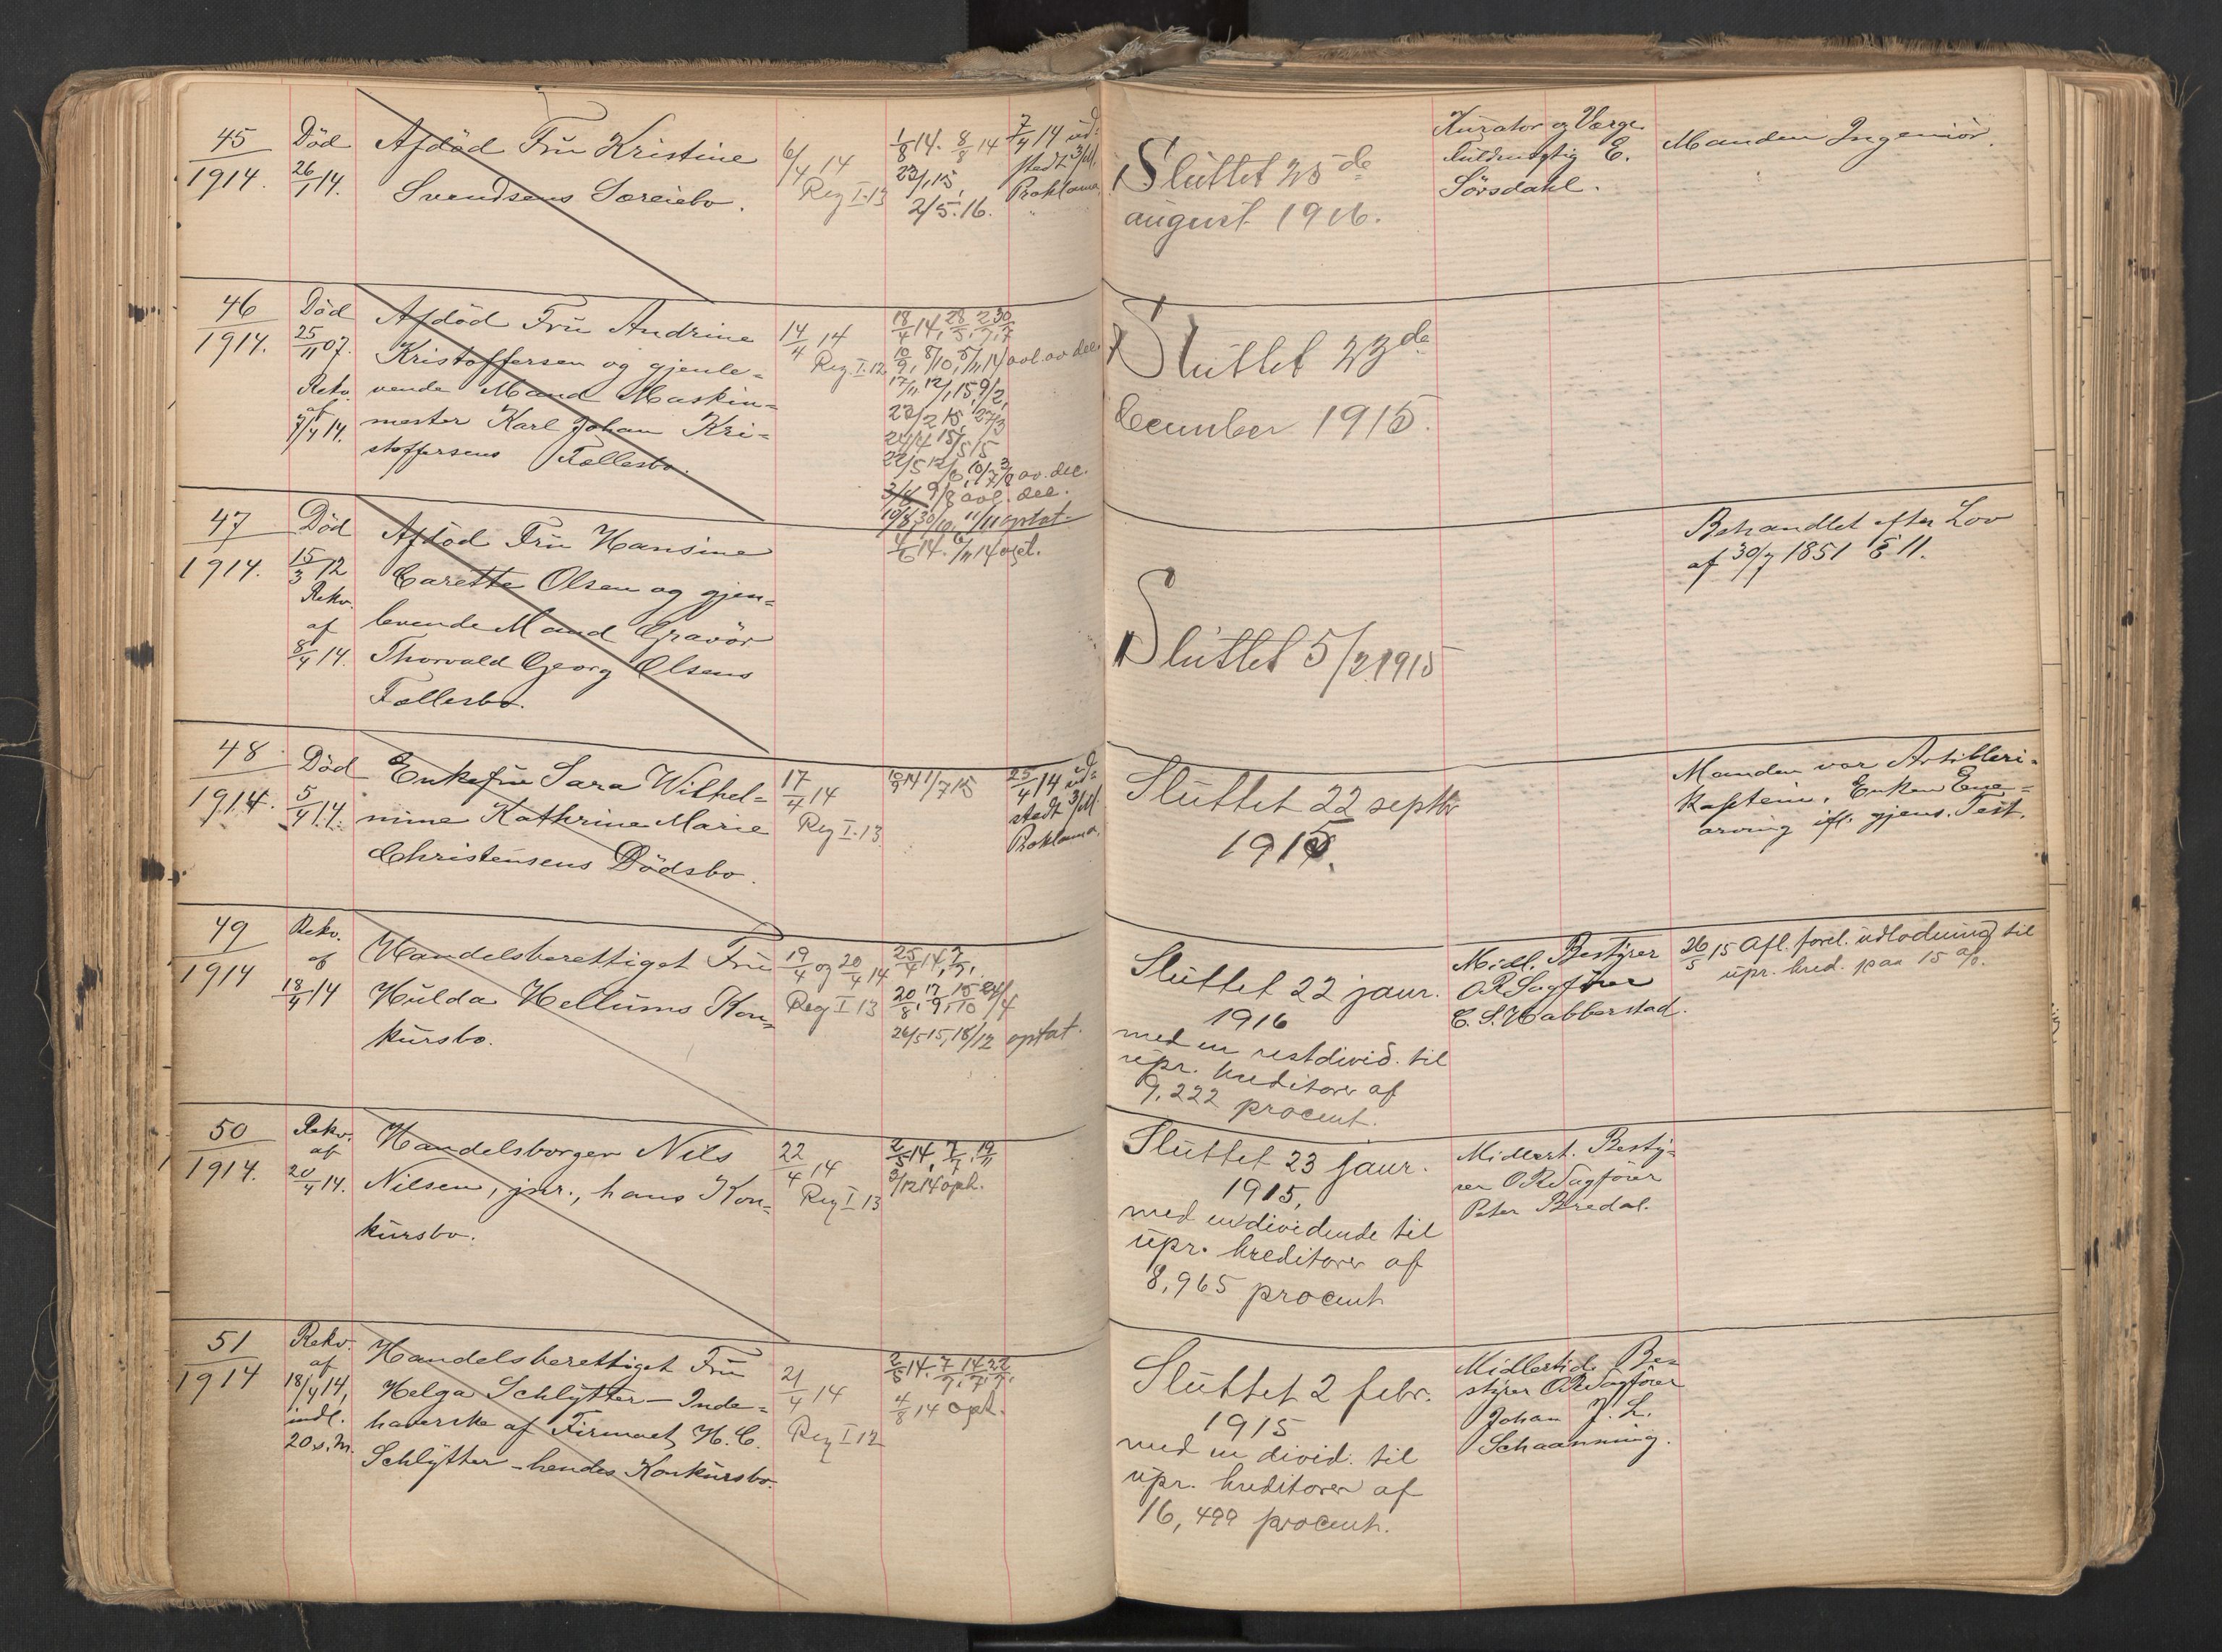 45
1914.
Död
26/1 14.
Afdöd Fru Kristine
Svendsens Særeiebo.
6/4 14
Reg I.13
1/8 14. 8/8 14
23/1 15,
2/5.16.
7/4 14 ud-
stedt 3/M.
Proklama.
Sluttet 25de
august 1916.
Kurator og Værge
Fuldmægtig E.
Sörsdahl.
Manden Ingeniör.
46
1914.
Död
25/11 07.
Rekv.
af
7/4 14.
Afdöd Fru Andrine
Kristoffersen og gjenle-
vende Mand Maskin-
mester Karl Johan Kri-
stoffersens Fællesbo.
14/4 14
Reg I.12
Sluttet 23de
december 1915.
47
1914.
Död
15/3 12
Rekv.
af
8/4 14.
Afdöd Fru Hansine
Carette Olsen og gjen-
levende Mand Gravör
Thorvald Georg Olsens
Fællesbo.
4/6 14. 6/11 14 opt.
Sluttet 5/2 1915
Behandlet efter Lov
af 30/7 1851 § 11.
48
1914.
Död
5/4 14.
Enkefru Sara Wilhel-
mine Kathrine Marie
Christensens Dödsbo.
17/4 14
Reg I.13
10/9 14 1/7 15
25/4 14 ud-
stedt 3/M.
Proklama.
Sluttet 22 septbr
1915.
Manden var Artilleri-
kaptein. Enken Ene-
arving ifl. gjens. Test.
49
1914
Rekv.
af
18/4 14
Handelsberettiget Fru
Hulda Hellums Kon-
kursbo.
19/4 og 20/4 14
Reg I 13
26/5 15, 18/12 optat.
Sluttet 22 jaur.
1916
med en restdivid. til
upr. kreditorer af
9,222 procent.
Midl. Bestyrer
ORSagförer
C. S. Habberstad.
26/5 15 Afl. forel. udlodning til
upr. kred. paa 15 %.
50
1914.
Rekv.
af
20/4 14.
Handelsborger Nils
Nilsen, jnr., hans Kon-
kursbo.
22/4 14
Reg I 13
2/5 14, 7/7, 19/11
3/12 14 oph.
Sluttet 23 jaur.
1915,
med en dividende til
upr. kreditorer af
8,965 procent
Midlert. Besty-
rer ORSagförer
Peter Bredal.
51
1914
Rekv.
af
18/4 14,
indl.
20 s. M.
Handelsberettiget Fru
Helga Schlytter – Inde-
haverske af Firmaet H. C.
Schlytter – hendes Konkursbo.
21/4 14
Reg I 12
2/5 14. 7/7, 14/7, 22/7,
4/8 14 opt.
Sluttet 2 febr.
1915
med en divid. til
upr. kreditorer af
16,499 procent.
Midlertid. Be-
styrer ORSagförer
Johan J. L.
Schaanning.